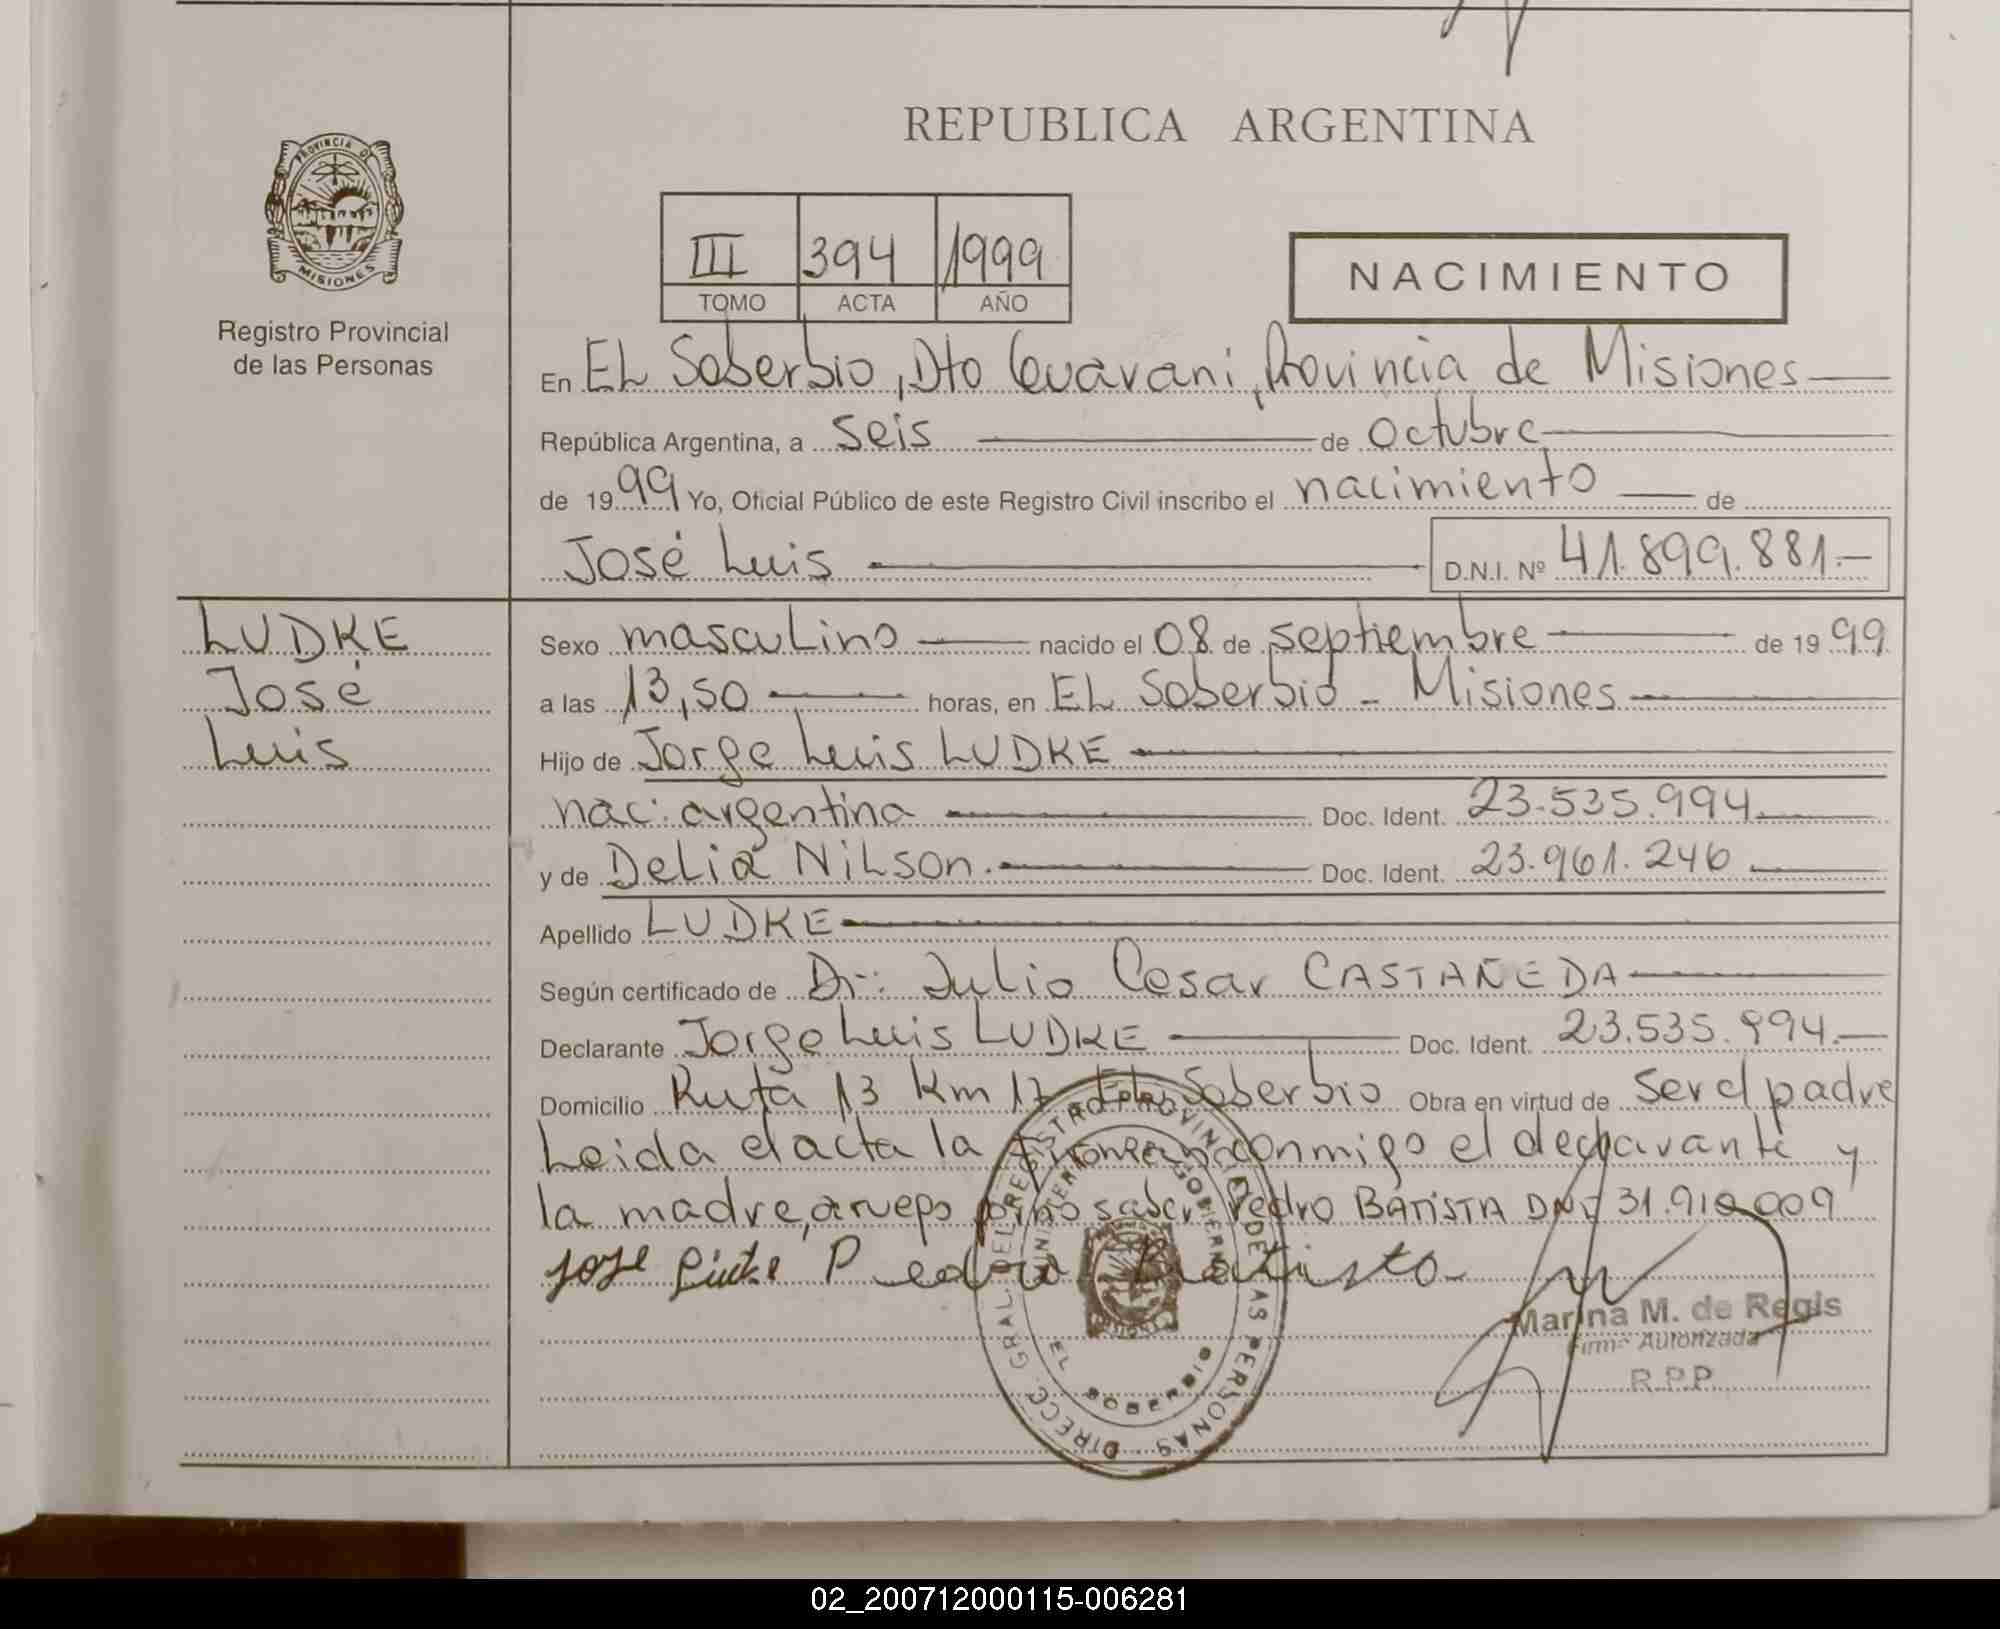 REPUBLICA ARGENTINA
PROVINCIA D
MISIONES
Registro Provincial
de las Personas
III 394 1999
TOMO ACTA AÑO
NACIMIENTO
En EL Soberbio, Dto Guarani, Provincia de Misiones
República Argentina, a seis de octubre
de 1999 Yo, Oficial Público de este Registro Civil inscribo el nacimiento de
José Luis D.N.I. Nº 41.899.881.-
LUDKE
José
Luis
Sexo masculino nacido el 08 de septiembre de 1999
a las 13,50 horas, en EL Soberbio - Misiones
Hijo de Jorge Luis LUDKE
nac: argentina Doc. Ident. 23.535.994
y de Delia Nilson. Doc. Ident. 23.961.246
Apellido LUDKE
Según certificado de Dr: Julio Cesar CASTAÑEDA
Declarante Jorge Luis LUDKE Doc. Ident. 23.535.994.-
Domicilio Ruta 13 Km 17 El Soberbio Obra en virtud de ser el padre
Leida el acta la firman conmigo el declarante y
la madre, a ruego p/no saber Pedro BATISTA DNI 31.912.009
Pedro Batista
DIRECC. GRAL. DEL REGISTRO PROVINCIAL DE LAS PERSONAS
GOBIERNO
EL SOBERBIO
Marina M. de Regis
Firma Autorizada
R.P.P.
02_200712000115-006281